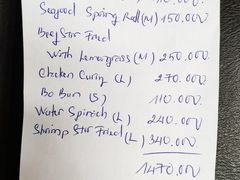 Seafood Spring Roll (M) 150.000
Beef Star Fried
With Lemongrass (M) 250.000
Chicken Curry (L) 270.000
Bo Bun (S) 110.000
Water Spinich (L) 240.000
Shrimp Star Fried (L) 340.000
1470.000